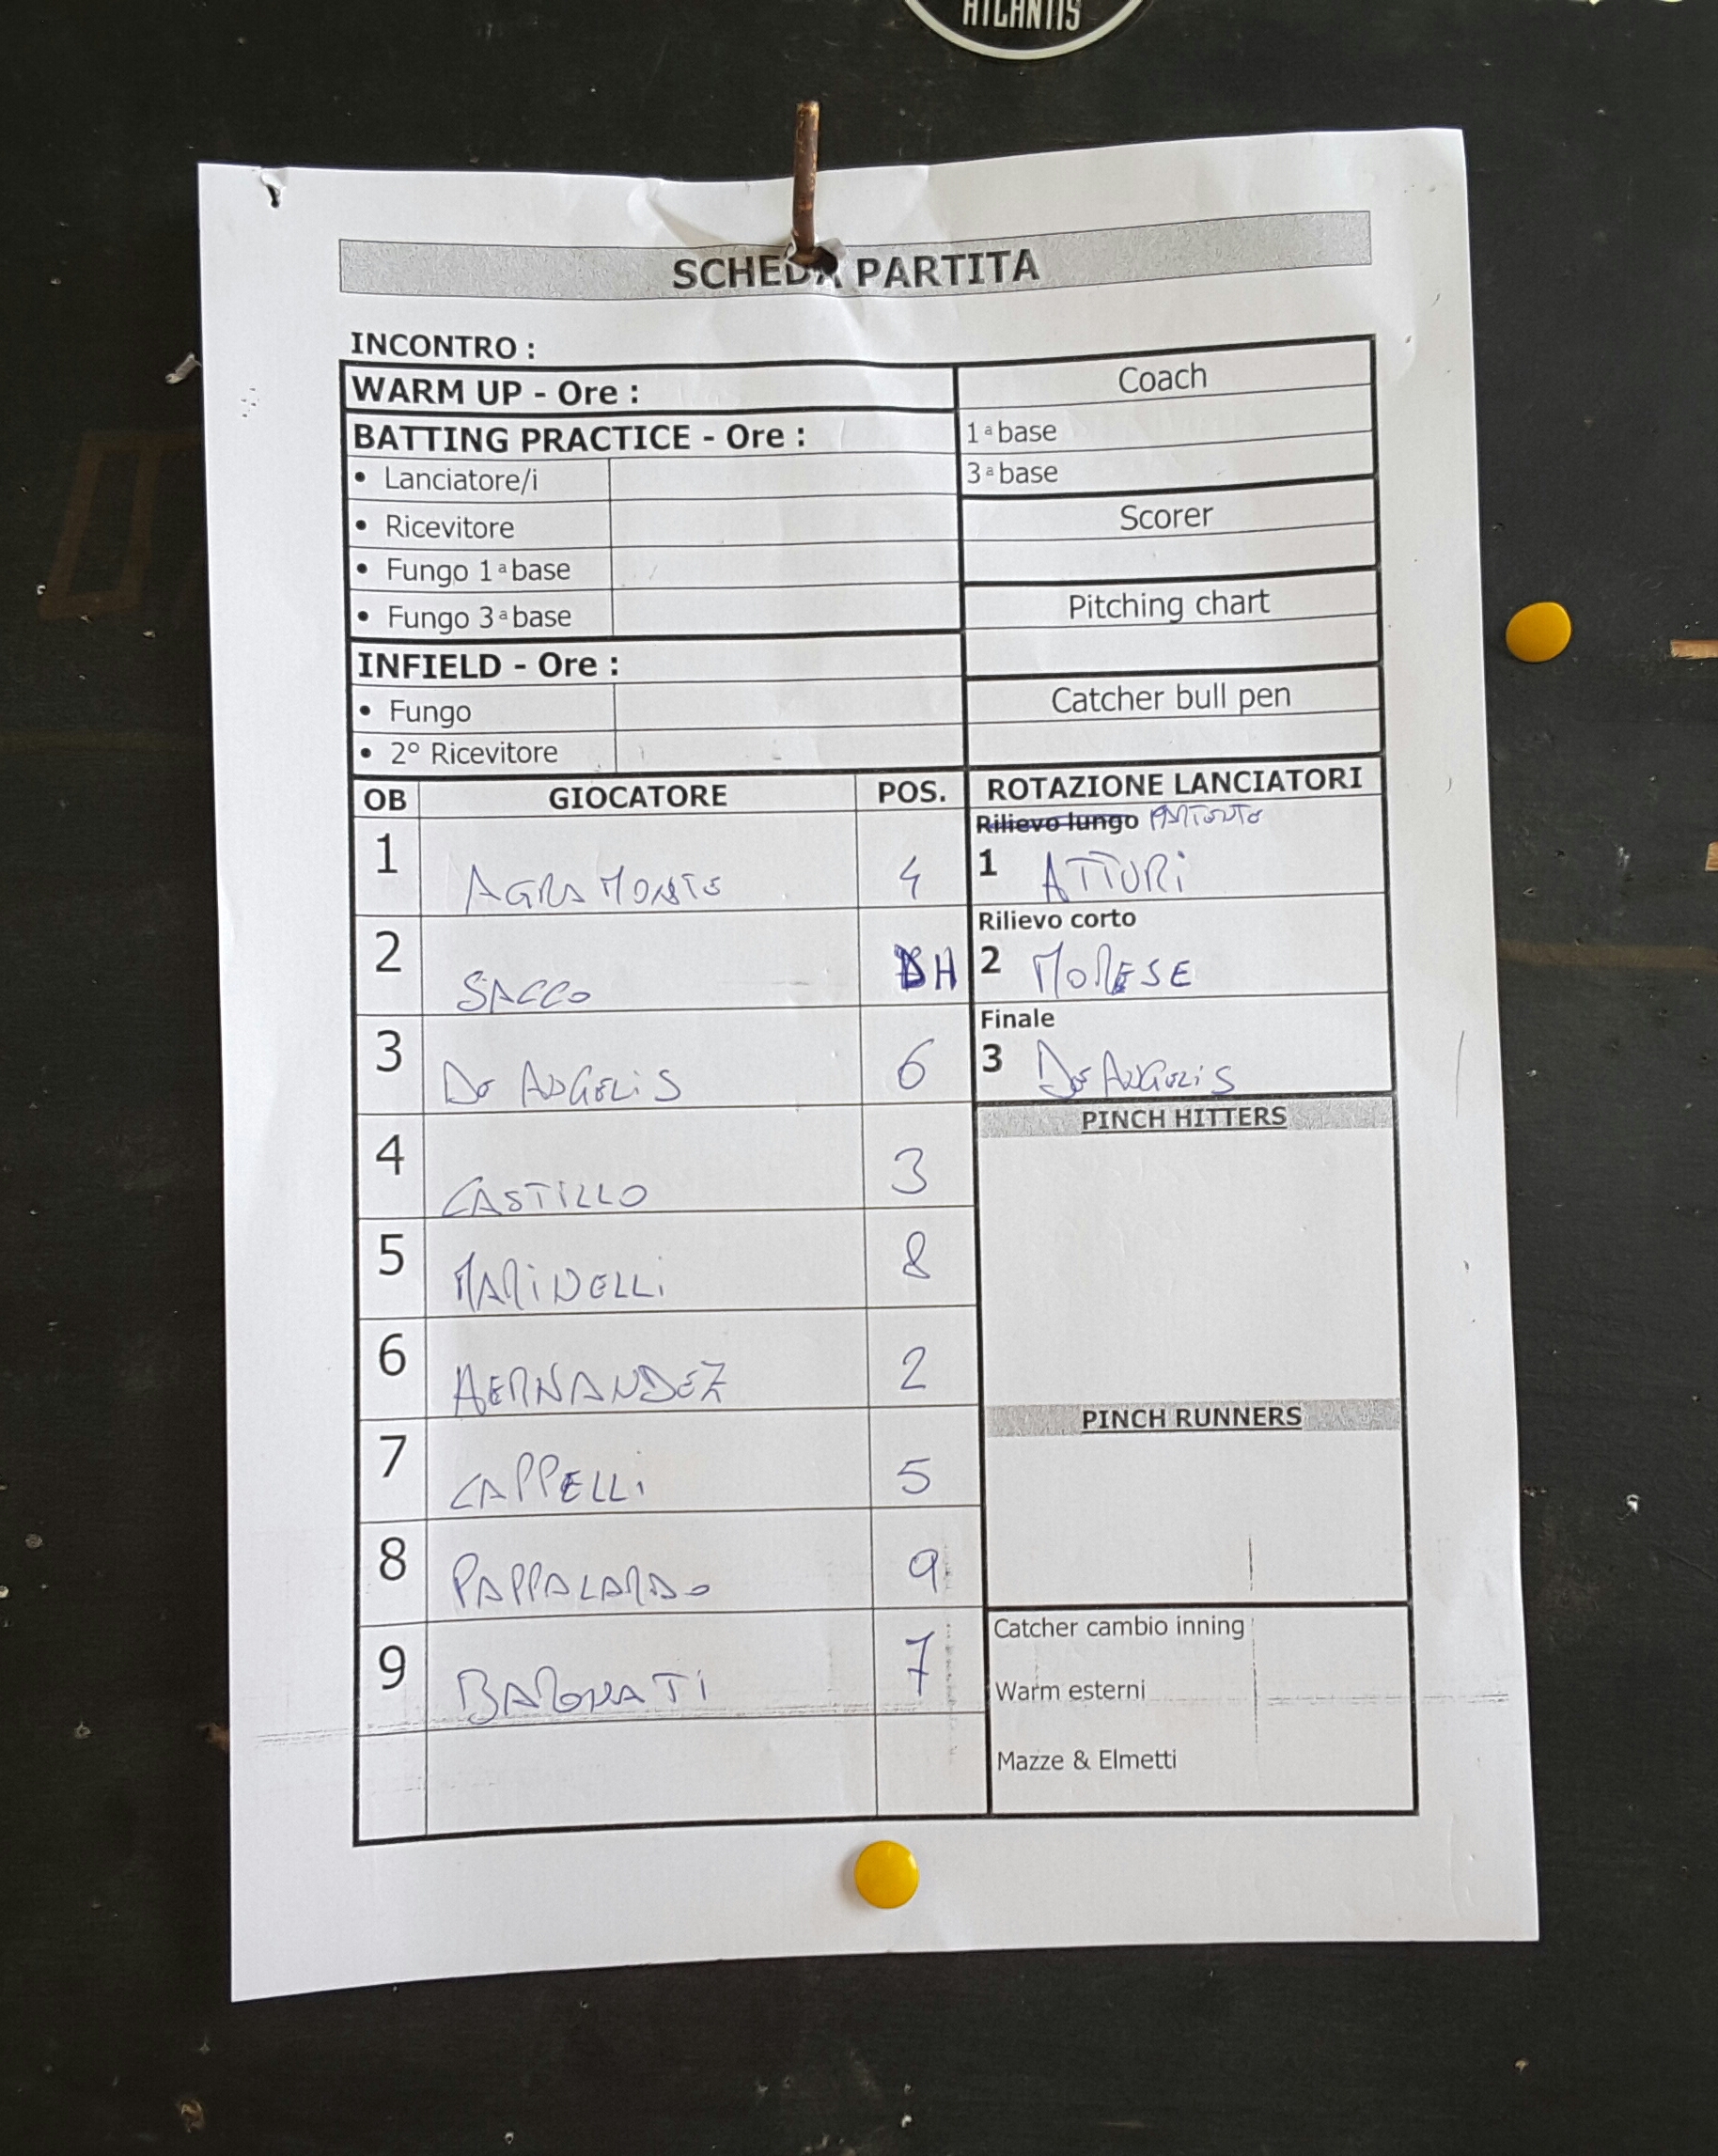 ATLANTIS
SCHEDA PARTITA
INCONTRO :
WARM UP - Ore :
Coach
BATTING PRACTICE - Ore :
1ª base
• Lanciatore/i
3ª base
• Ricevitore
Scorer
• Fungo 1ª base
• Fungo 3ª base
Pitching chart
INFIELD - Ore :
• Fungo
Catcher bull pen
• 2° Ricevitore
OB GIOCATORE POS. ROTAZIONE LANCIATORI
Rilievo lungo PARTENTE
1 AGRAMONTE 4 1 ATTURI
Rilievo corto
2 SACCO DH 2 MORESE
Finale
3 De ANGELiS 6 3 De ANGELiS
PINCH HITTERS
4 CASTILLO 3
5 MARiNELLi 8
6 HERNANDEZ 2
PINCH RUNNERS
7 CAPPELLi 5
8 PAPPALARDO 9
9 7
Catcher cambio inning
Warm esterni
Mazze & Elmetti